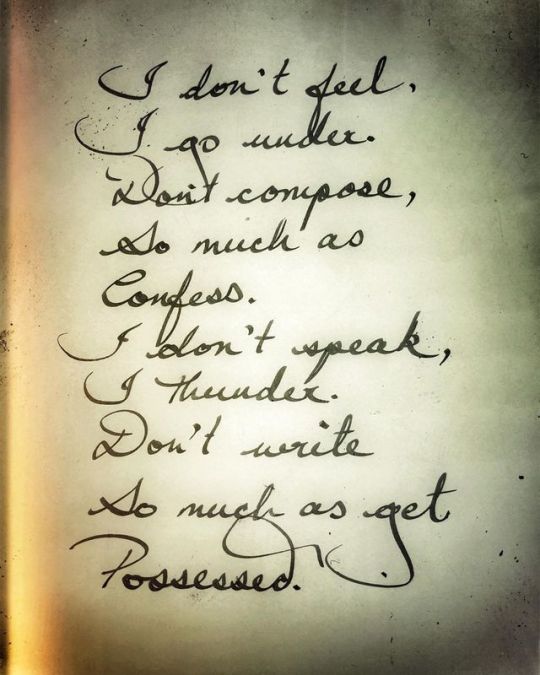 I don't feel,
I go under.
Don't compose,
So much as
Confess.
I don't speak,
I Thunder.
Don't write
So much as get
Possessed.